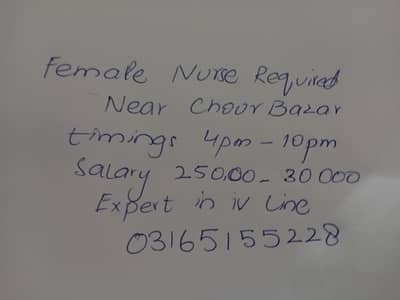 Female Nurse Required
Near Chour Bazar
timings 4pm - 10pm
Salary 25000 - 30000
Expert in iv Line
03165155228